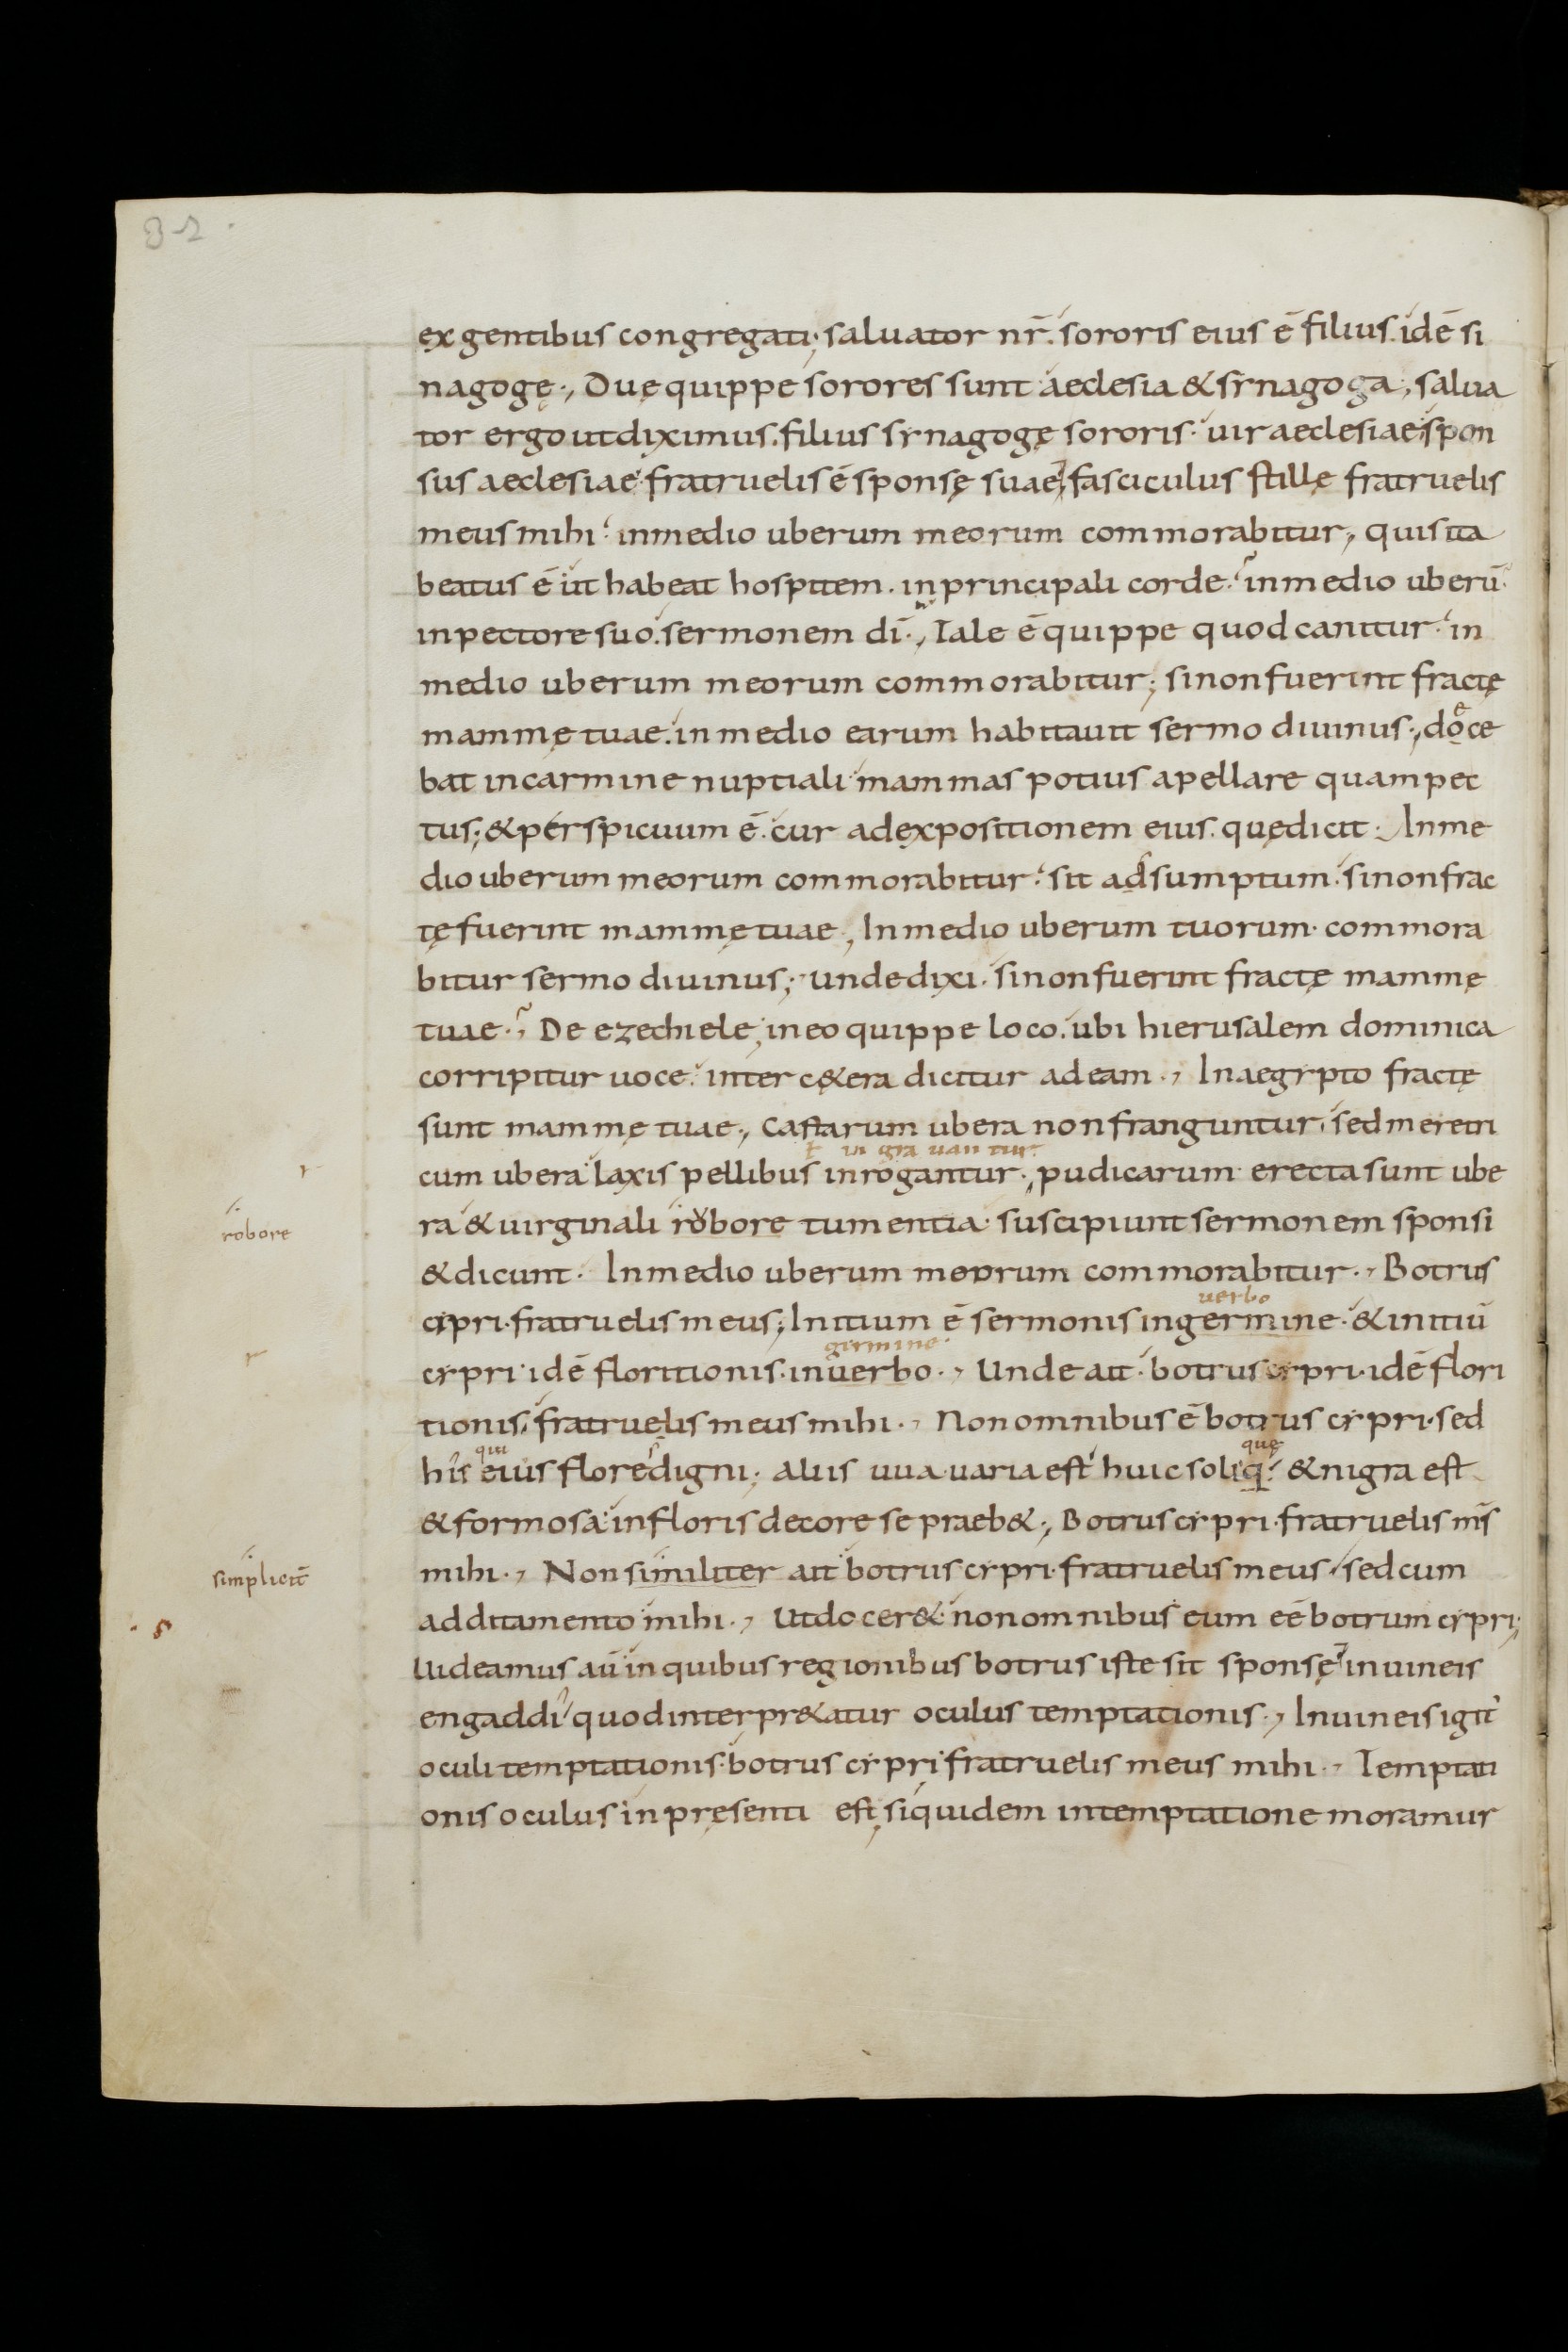 32.
ex gentibus congregati; saluator nr̄. sororis eius ē filius. idē si
nagogę., Duę quippe sorores sunt aeclesia & synagoga, salua
tor ergo ut diximus. filius synagogę sororis. uir aeclesiae spon
sus aeclesiae fratruelis ē sponsę suae; fasciculus stillę fratruelis
meus mihi. in medio uberum meorum commorabitur, quis ita
beatus ē ut habeat hospitem. in principali corde. in medio uberū.
in pectore suo. sermonem dī., Tale ē quippe quod canitur. in
medio uberum meorum commorabitur; si non fuerint fractę
mammę tuae. in medio earum habitauit sermo diuinus., doce
bat in carmine nuptiali mammas potius apellare quam pec
tus; & perspicuum ē. cur ad expositionem eius. quę dicit. In me
dio uberum meorum commorabitur. sit adsumptum. si non frac
tę fuerint mammę tuae, In medio uberum tuorum. commora
bitur sermo diuinus; unde dixi. si non fuerint fractę mammę
tuae., De ezechiele, in eo quippe loco. ubi hierusalem dominica
corripitur uoce. inter c&era dicitur ad eam., In aegypto fractę
sunt mammę tuae., Castarum ubera non franguntur, sed meretri
ł in gra uan tur.
cum ubera laxis pellibus inrogantur., pudicarum erecta sunt ube
r
robore
ra & uirginali robore tumentia. suscipiunt sermonem sponsi
& dicunt. In medio uberum meorum commorabitur., Botrus
uerbo
cipri. fratruelis meus; Initium ē sermonis in germine. & initiū
germine
r
cypri idē floritionis. in uerbo., Unde ait. botrus cypri. idē flori
tionis. fratruelis meus mihi., Non omnibus ē botrus cypri. sed
qui
quę
his eius flore digni; aliis uua uaria est huic soli q̄. & nigra est
& formosa in floris decore se praeb&., Botrus cypri. fratruelis m̄s
simplicit̄
mihi., Non similiter ait botrus cypri. fratruelis meus, sed cum
s
additamento mihi., Ut docer& non omnibus eum eē botrum cypri;
Uideamus aū in quibus regionibus botrus iste sit sponsę in uineis
engaddi quod interpr&atur oculus temptationis., In uineis igit̄
oculi temptationis. botrus cypri fratruelis meus mihi., Temptati
onis oculus in pręsenti est, siquidem in temptatione moramur